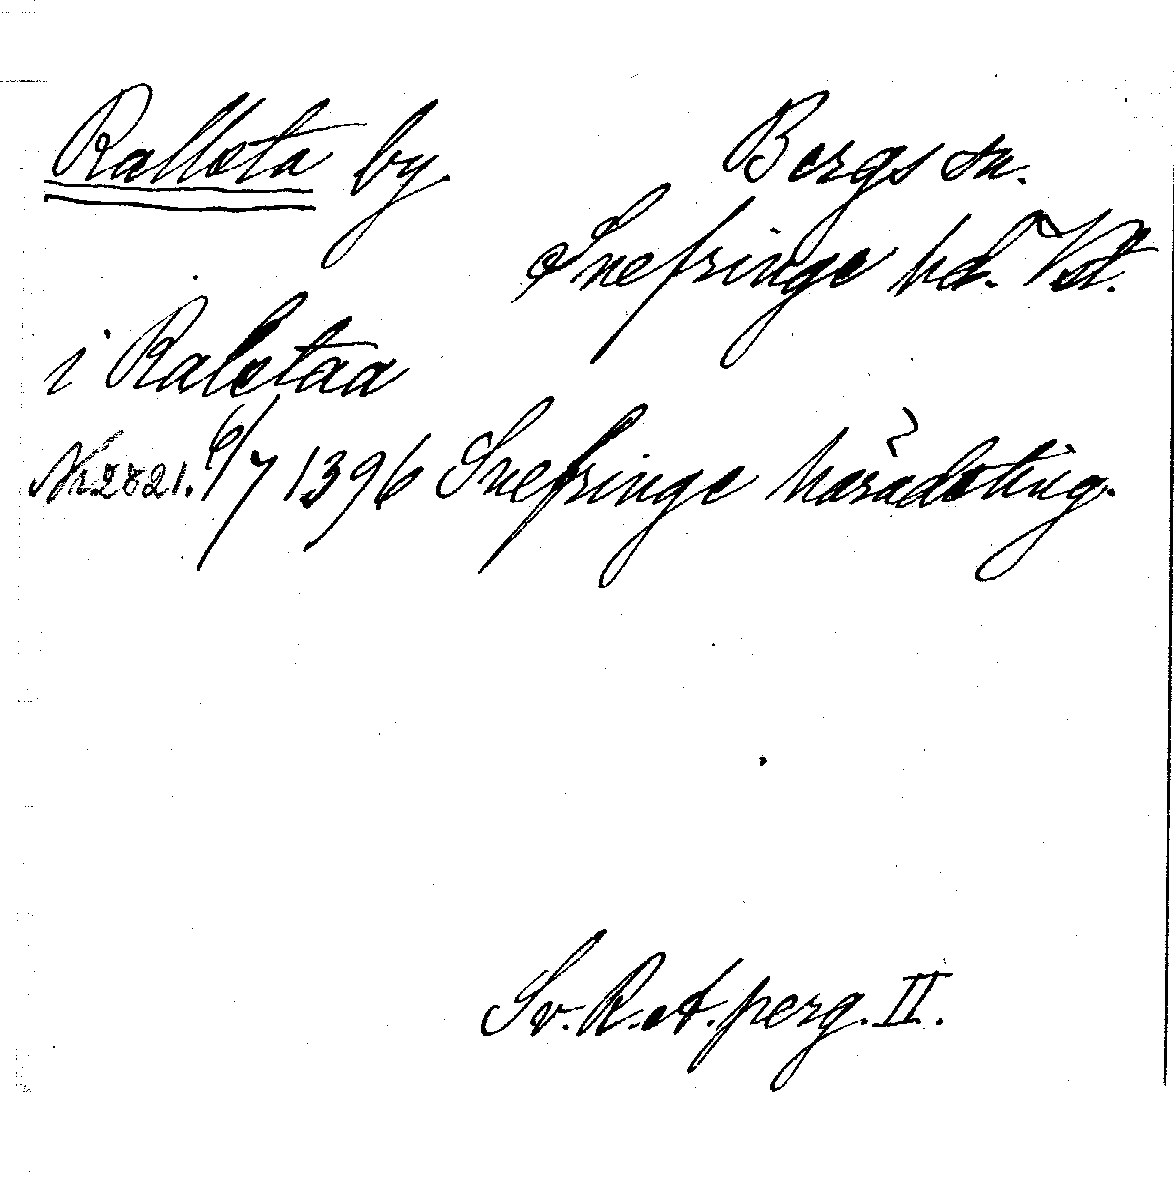 Rallsta by.
Bergs sn.
Snefringe hd. Vstl.
i Ralstaa
Nr 2821. 6/7 1396 Snefringe häradsting.
Sv. R. A. perg. II.